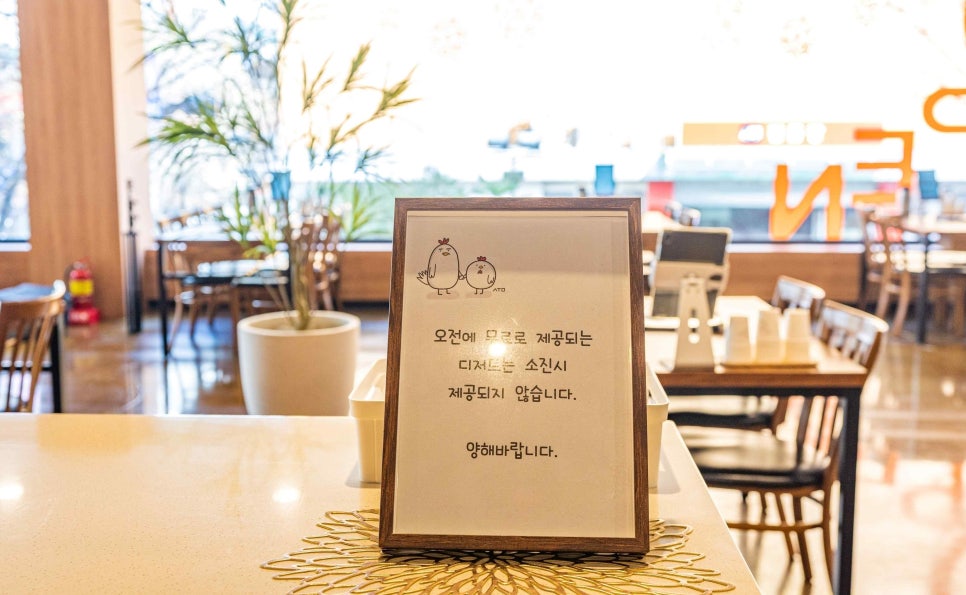 오전에 무료로 제공되는
디저트는 소진시
제공되지 않습니다.
양해바랍니다.
EN